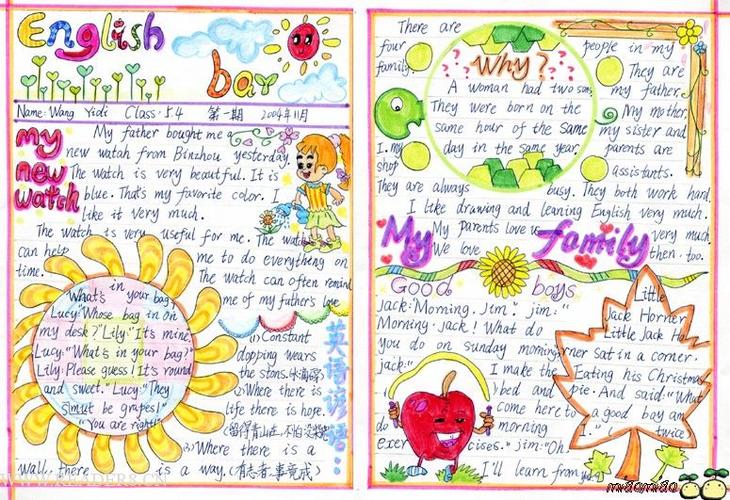 English
bar
Name: Wang Yidi Class: 5.4 第一期 2004年11月
my
new
watch
My father bought me a
new watah from Binzhou yesterday.
The watch is very beautiful. It is
blue. That's my favorite color. I
like it very much.
The watch is very useful for me. The watch
can help me to do everything on
time. The watch can often remind
me of my father's love
What's in your bag?
Lucy: "Whose bag is on
my desk?" Lily: "It's mine
Lucy: "What's in your bag?"
Lily: Please guess! It's round
and sweet. "Lucy: "They
must be grapes!"
"You are right!"
英语谚语:
(1) Constant
dopping wears
the stons. (水滴石穿)
(2) Where there is
life there is hope.
(留得青山在,不怕没柴烧)
(3) Where there is a
wall, there is a way. (有志者事竟成)
There are
four people in my
family. They are
my father,
My mother,
my sister and
I. my parents are
shop assistants.
They are always busy. They both work hard.
I like drawing and leaning English very much.
My Parents love us very much.
We love then. too.
Why?
A woman had two sons,
They were born on the
same hour of the same
day in the same year.
My family
Good boys
jack: "Morning. Jim". jim: "
Morning. jack! What do
you do on sunday morning
jack: " I make the
bed and
come here to
do morning
exercises." jim: "Oh.
I'll learn from you
Little
Jack Horner
Little Jack Horner sat in a corner.
Eating his Christmas
Pie. And said: "What
a good boy am
I." twice
miaomiao